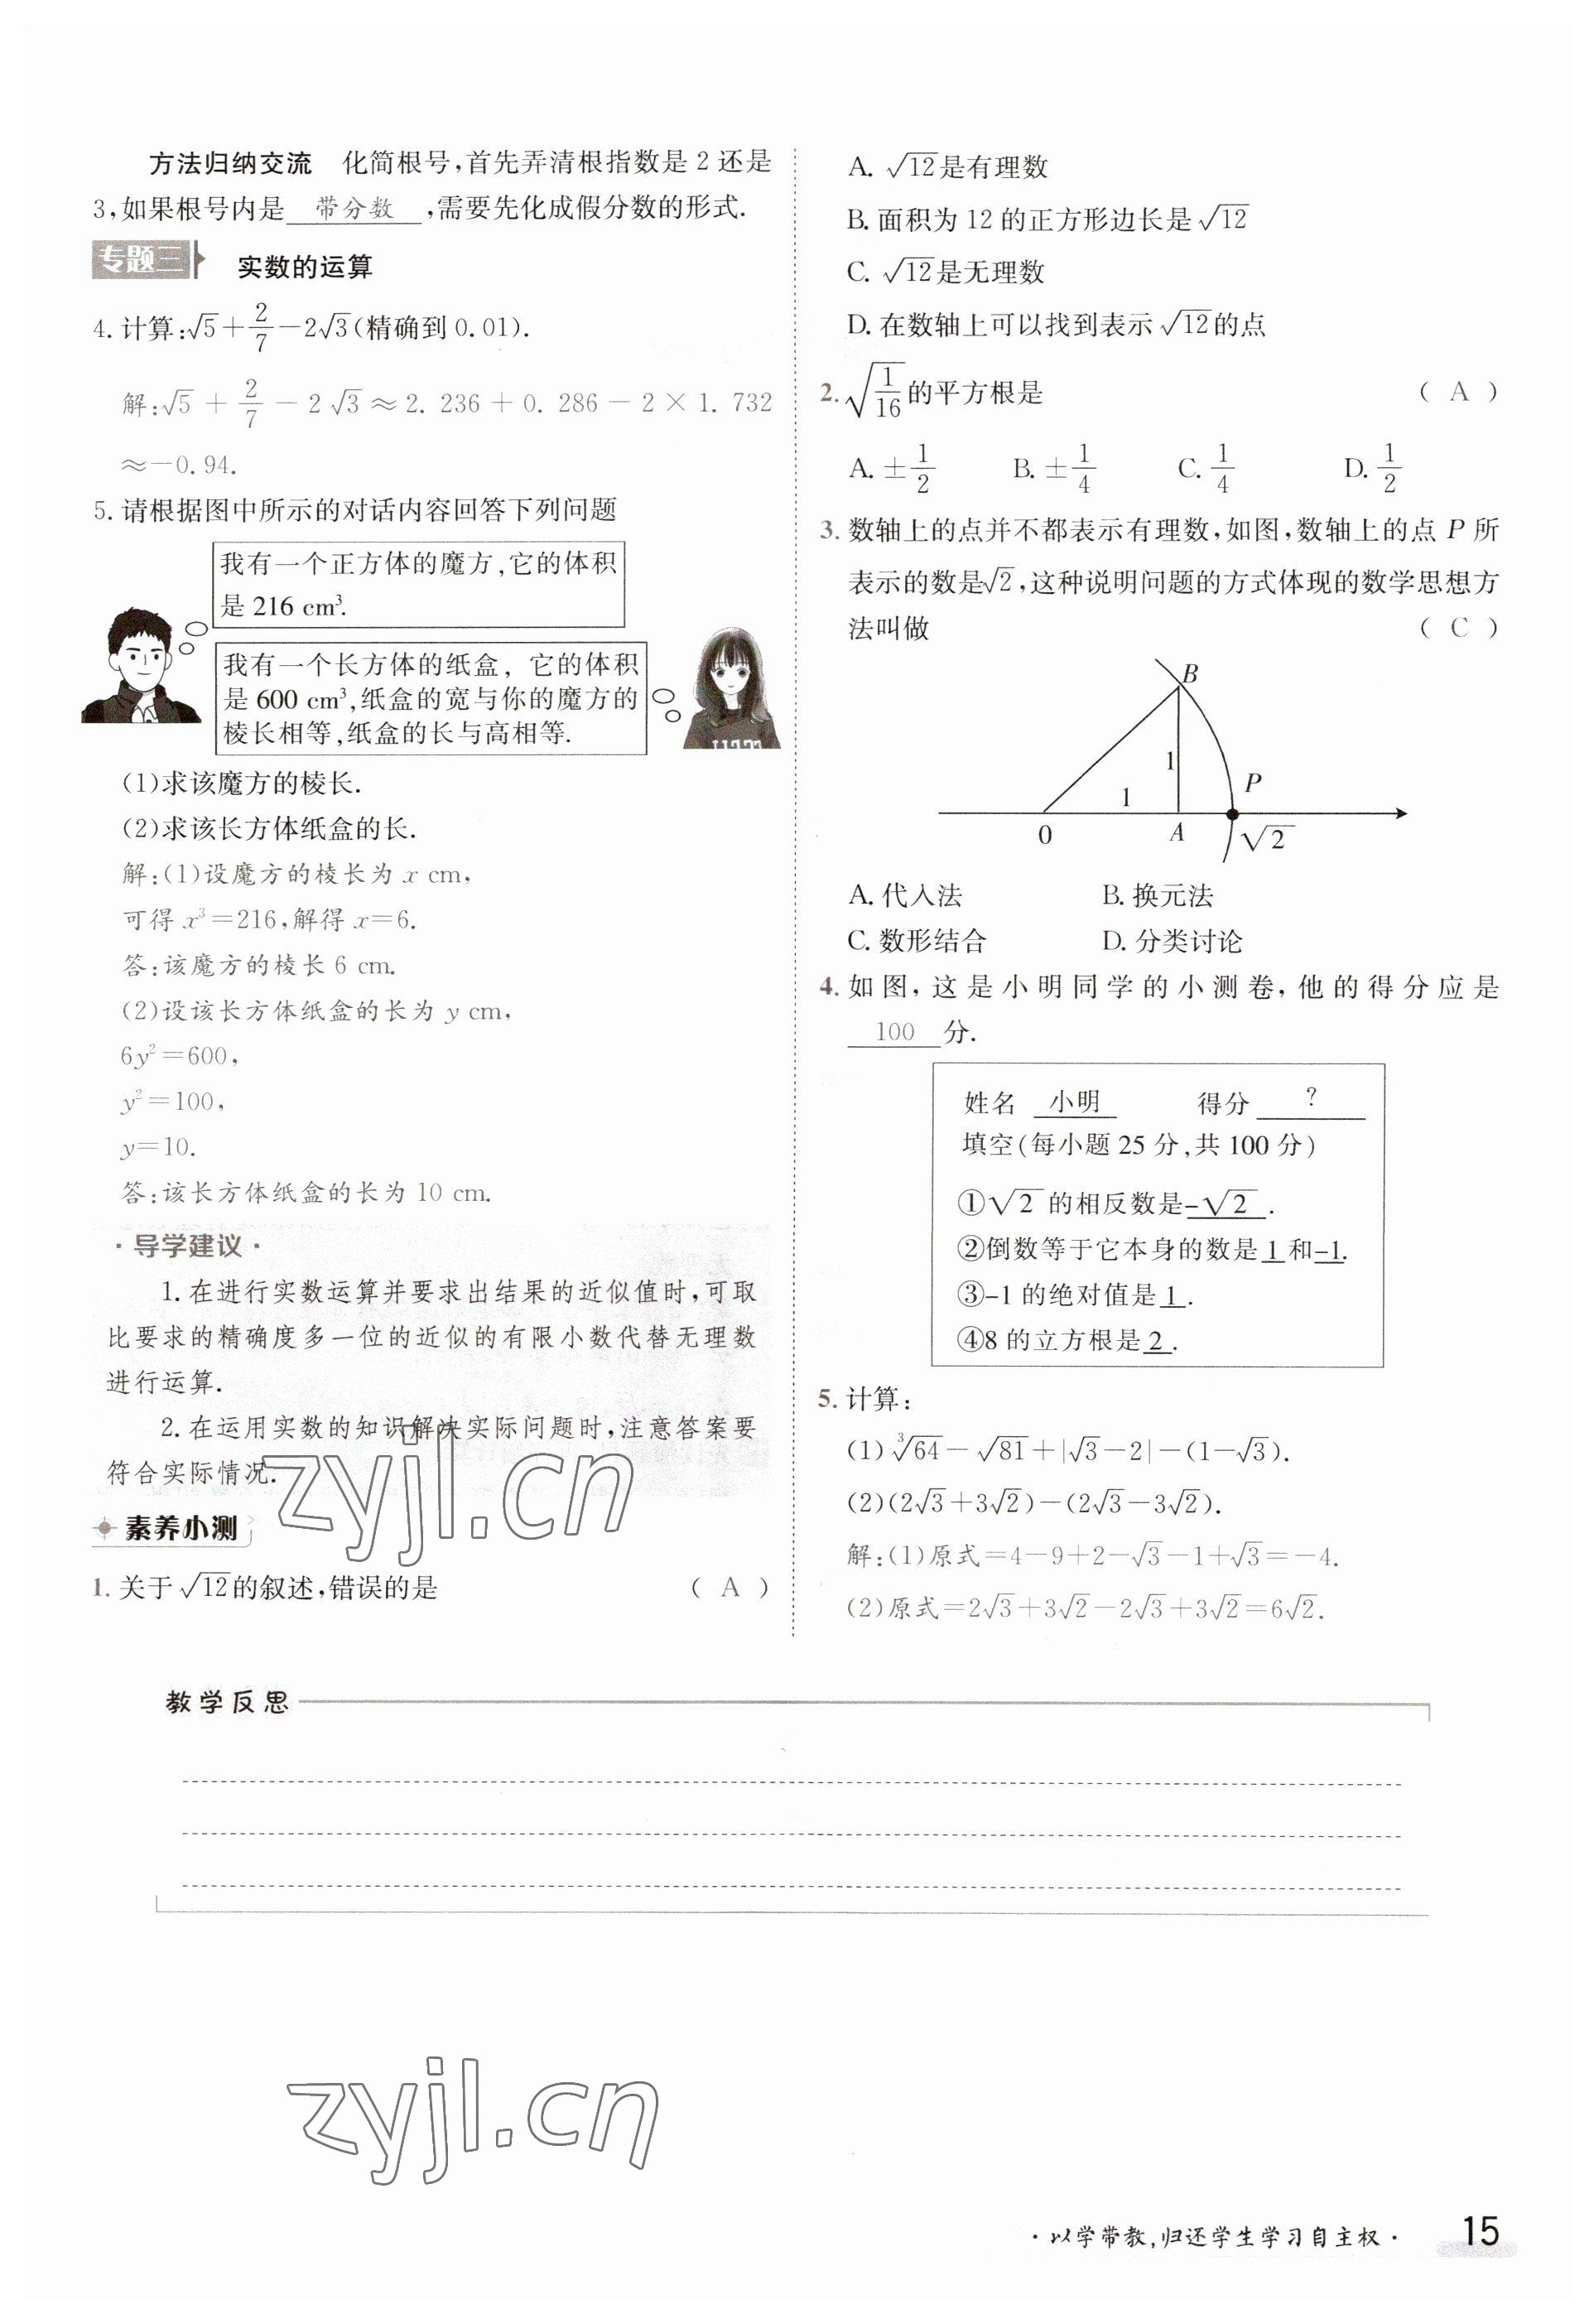 方法归纳交流 化简根号,首先弄清根指数是 2 还是
3,如果根号内是 带分数 ,需要先化成假分数的形式.
专题三 实数的运算
4. 计算:√5+2/7−2√3(精确到 0.01).
解:√5+2/7−2√3≈2.236+0.286−2×1.732
≈−0.94.
5. 请根据图中所示的对话内容回答下列问题
我有一个正方体的魔方,它的体积
是 216 cm³.
我有一个长方体的纸盒, 它的体积
是 600 cm³,纸盒的宽与你的魔方的
棱长相等,纸盒的长与高相等.
(1)求该魔方的棱长.
(2)求该长方体纸盒的长.
解:(1)设魔方的棱长为 x cm,
可得 x³=216,解得 x=6.
答:该魔方的棱长 6 cm.
(2)设该长方体纸盒的长为 y cm,
6y²=600,
y²=100,
y=10.
答:该长方体纸盒的长为 10 cm.
·导学建议·
1.在进行实数运算并要求出结果的近似值时,可取
比要求的精确度多一位的近似的有限小数代替无理数
进行运算.
2.在运用实数的知识解决实际问题时,注意答案要
符合实际情况.
zyjl.cn
素养小测
1. 关于√12的叙述,错误的是 ( A )
A. √12是有理数
B. 面积为 12 的正方形边长是√12
C. √12是无理数
D. 在数轴上可以找到表示√12的点
2. √(1/16)的平方根是 ( A )
A. ±1/2 B. ±1/4 C. 1/4 D. 1/2
3. 数轴上的点并不都表示有理数,如图,数轴上的点 P 所
表示的数是√2,这种说明问题的方式体现的数学思想方
法叫做 ( C )
B
1
P
1
0 A √2
A. 代入法 B. 换元法
C. 数形结合 D. 分类讨论
4. 如图,这是小明同学的小测卷,他的得分应是
100 分.
姓名 小明 得分 ?
填空(每小题 25 分,共 100 分)
①√2的相反数是-√2.
②倒数等于它本身的数是 1 和-1.
③-1 的绝对值是 1 .
④8 的立方根是 2 .
5. 计算:
(1)³√64−√81+|√3−2|−(1−√3).
(2)(2√3+3√2)−(2√3−3√2).
解:(1)原式=4−9+2−√3−1+√3=−4.
(2)原式=2√3+3√2−2√3+3√2=6√2.
教学反思
zyjl.cn
·以学带教,归还学生学习自主权· 15